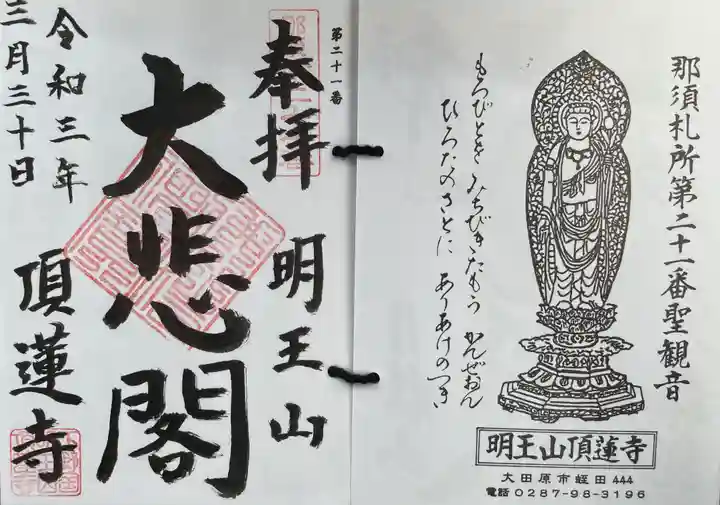 那須札所第二十一番聖観音
もろびとを みちびきたもう かんぜおん
ひろたのさとに ありあけのつき
明王山頂蓮寺
大田原市蛭田444
電話0287-98-3196
第二十一番
奉拝 明王山
大悲閣
頂蓮寺
令和三年
三月三十日